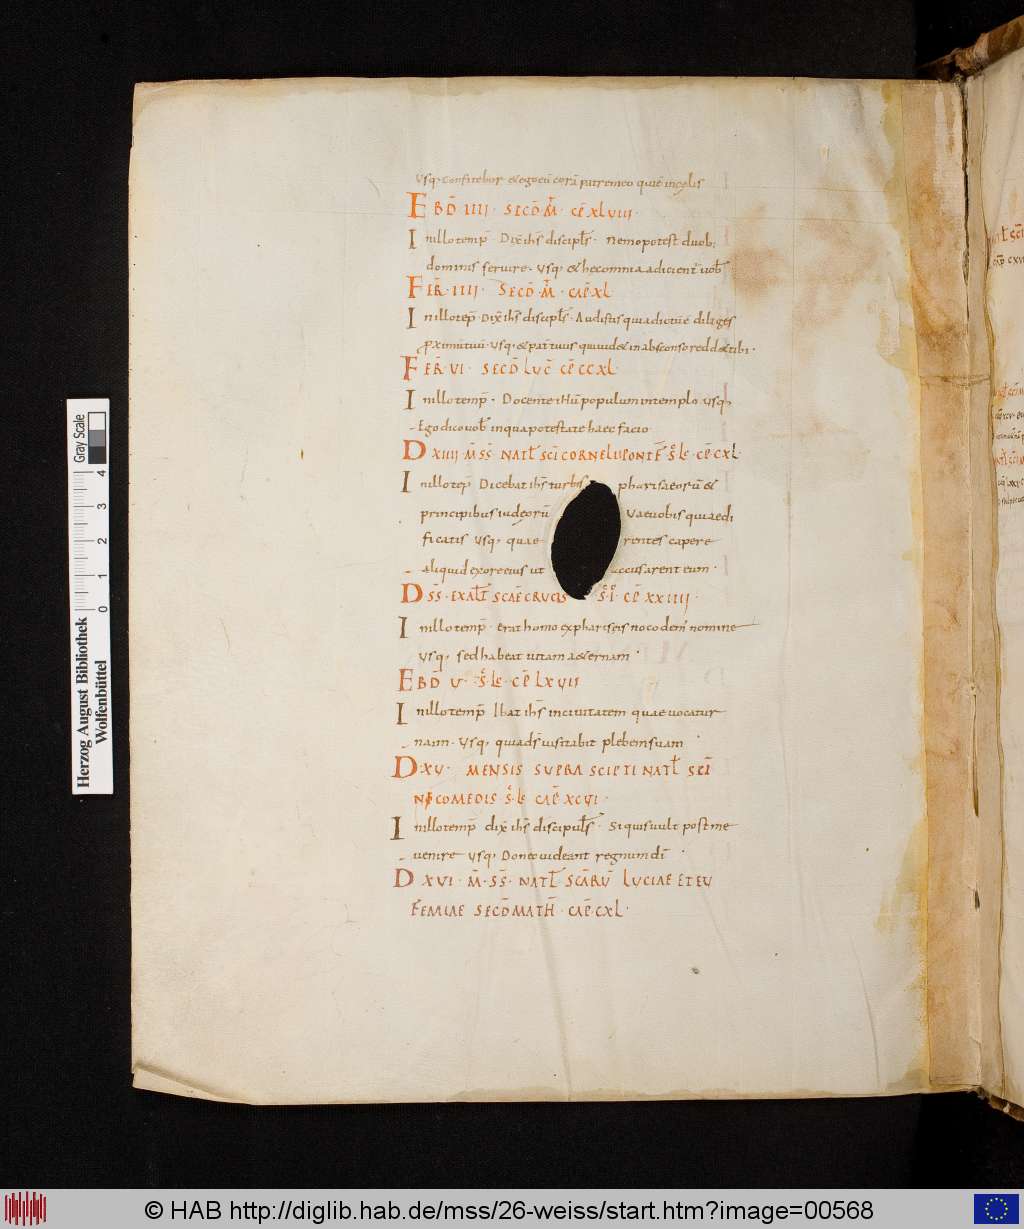 Usq; confitebor & ego eū corā patre meo qui ē in cęlis
EBD̄ IIII · SECD̄ · M̄ · CĒ XLVIII ·
In illo temp̄ · Dix̄ ih̄s discipłs · Nemo potest duob;
dominis servire · Usq; & hec omnia adicient' vob̄
FER̄ · IIII · SECD̄ · M̄ · CAĒ XL
In illo tēp · Dix̄ ih̄s discipłs · Audistis quia dictū ē diliges
proximū tuū · Usq; & pat̄ tuus qui uid& in absconso redd& tibi ·
FER̄ · VI · SECD̄ LUC̄ CĒ CCXL ·
In illo temp̄ · Docente ihū populum in templo usq;
Ego dico vob̄ in qua potestate haec facio
D XIIII M̄ S̄S̄ · NATŁ SCĪ CORNELII PONTF̄ S̊ LĒ · CĒ CXL ·
In illo tēp Dicebat ih̄s turbis pharisaeorū &
principibus iudęorū Vae vobis qui aedi
ficatis usq; quae rentes capere
aliquid ex ore eius ut accusarent eum ·
D S̄S̄ · EXALT̄ SCAĒ CRUCIS S̊ I̊ · CĒ XXIIII ·
In illo temp̄ · erat homo ex phariseis nicodem' nomine
Usq; sed habeat vitam aeternam ·
EBD̄ V · S̊ LĒ · CĒ LXVII
In illo temp̄ Ibat ih̄s in civitatem quae vocatur
naim · Usq; quia dš visitabit plebem suam
D · XV · MENSIS SUPRA SCIPTI NATŁ SCĪ
NICOMEDIS S̊ LĒ CAĒ XCVI ·
In illo temp̄ dix̄ ih̄s discipułs · Si quis vult post me
venire usq; Donec videant regnum dī ·
D XVI · M̄ · S̄S̄ · NATŁ SCĀRŪ LUCIAE ET EU
FEMIAE SECD̄ MATH̄ · CAĒ · CXL ·
Gray Scale
0 1 2 3 4
Herzog August Bibliothek
Wolfenbüttel
© HAB http://diglib.hab.de/mss/26-weiss/start.htm?image=00568